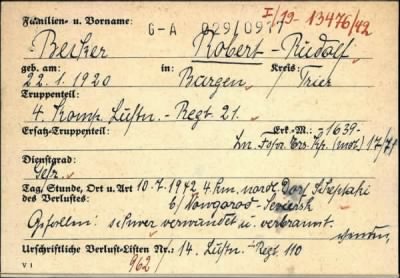 Familien- u. Vorname: G-A 029/0977 I/19-13476/42
Becker Robert-Rudolf
geb. am: in: Kreis:
22.1.1920 Bargen Trier
Truppenteil:
4. Komp. Luftn.-Regt 21.
Ersatz-Truppenteil: Erk.-M.: -1639-
Ln. Ers. Kp. (mot.) 17/71
Dienstgrad:
Gefr.
Tag, Stunde, Ort u. Art 10.7.1942 4 km. nördl. Dorf
des Verlustes: b/ Nowgorod-
Gefallen: schwer verwundet u. verbrannt.
Urschriftliche Verlust-Listen Nr.: 14. Luftn.-Regt 110
V 1 962/